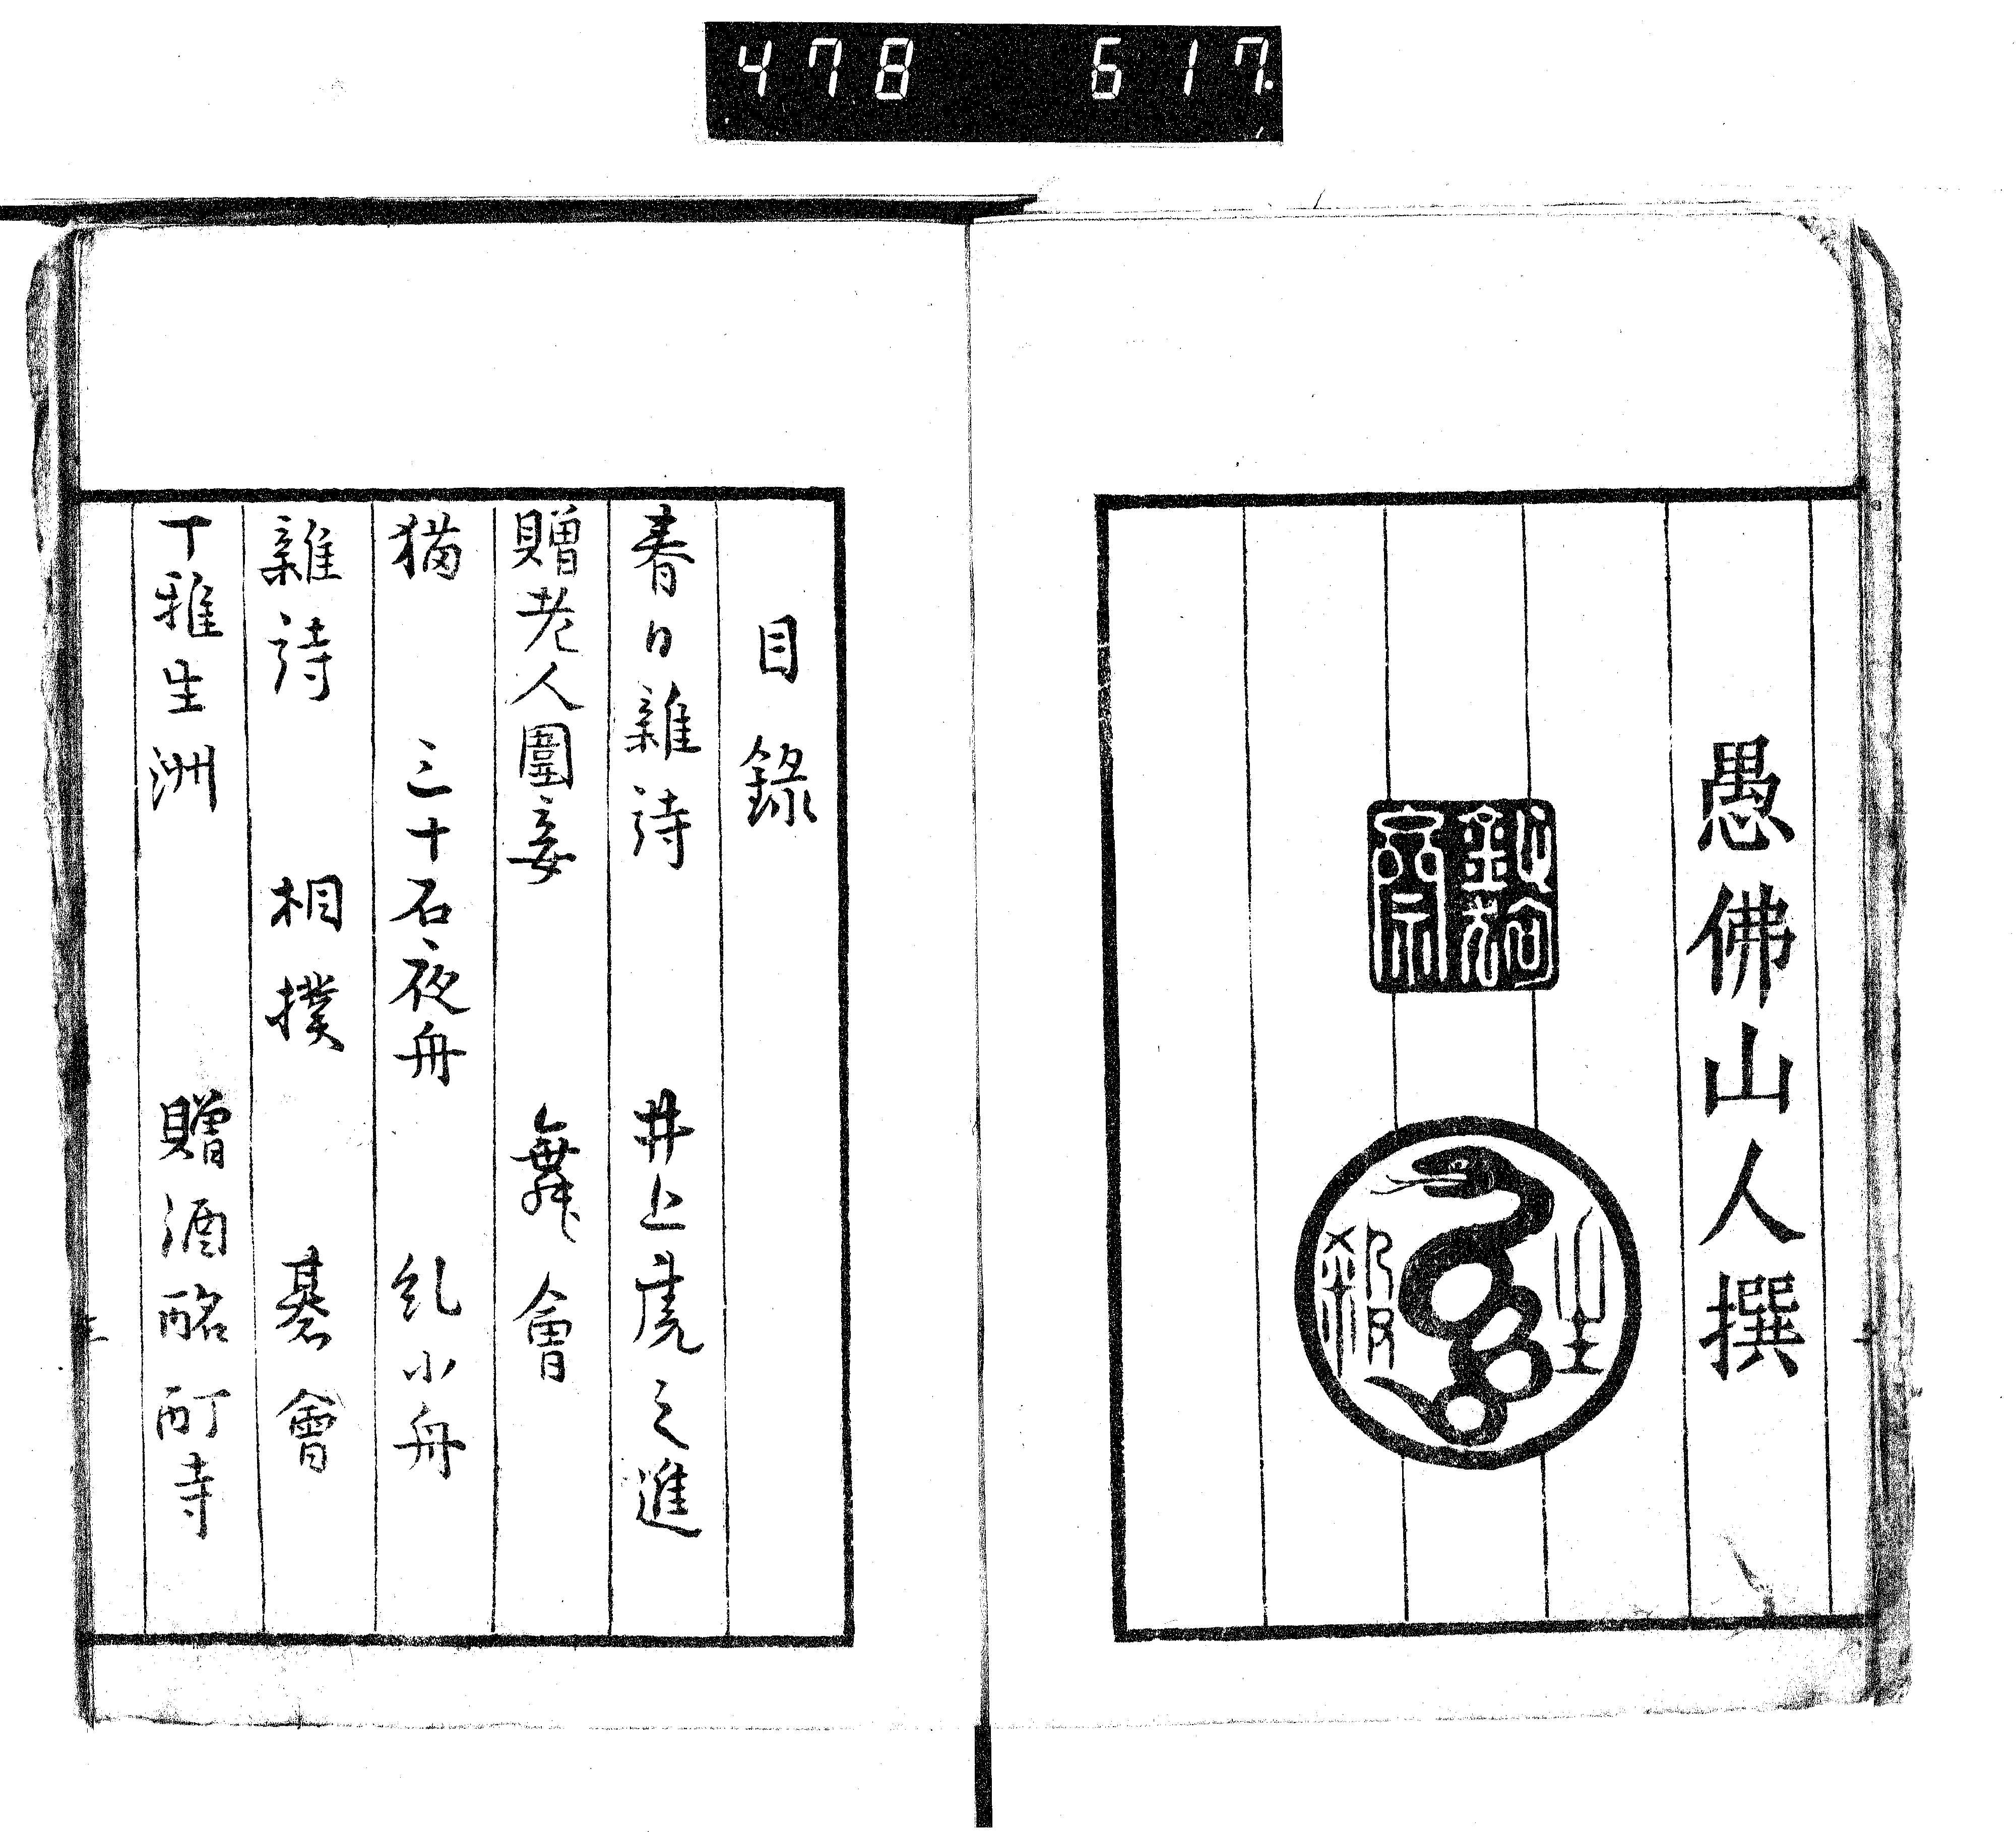 478 617.
愚佛山人撰
目錄
春日雜詩 井上虎之進
贈老人圍妾 舞會
猫 三十石夜舟 乱小舟
雜詩 相撲 碁會
丁稚生洲 贈酒酩酊寺